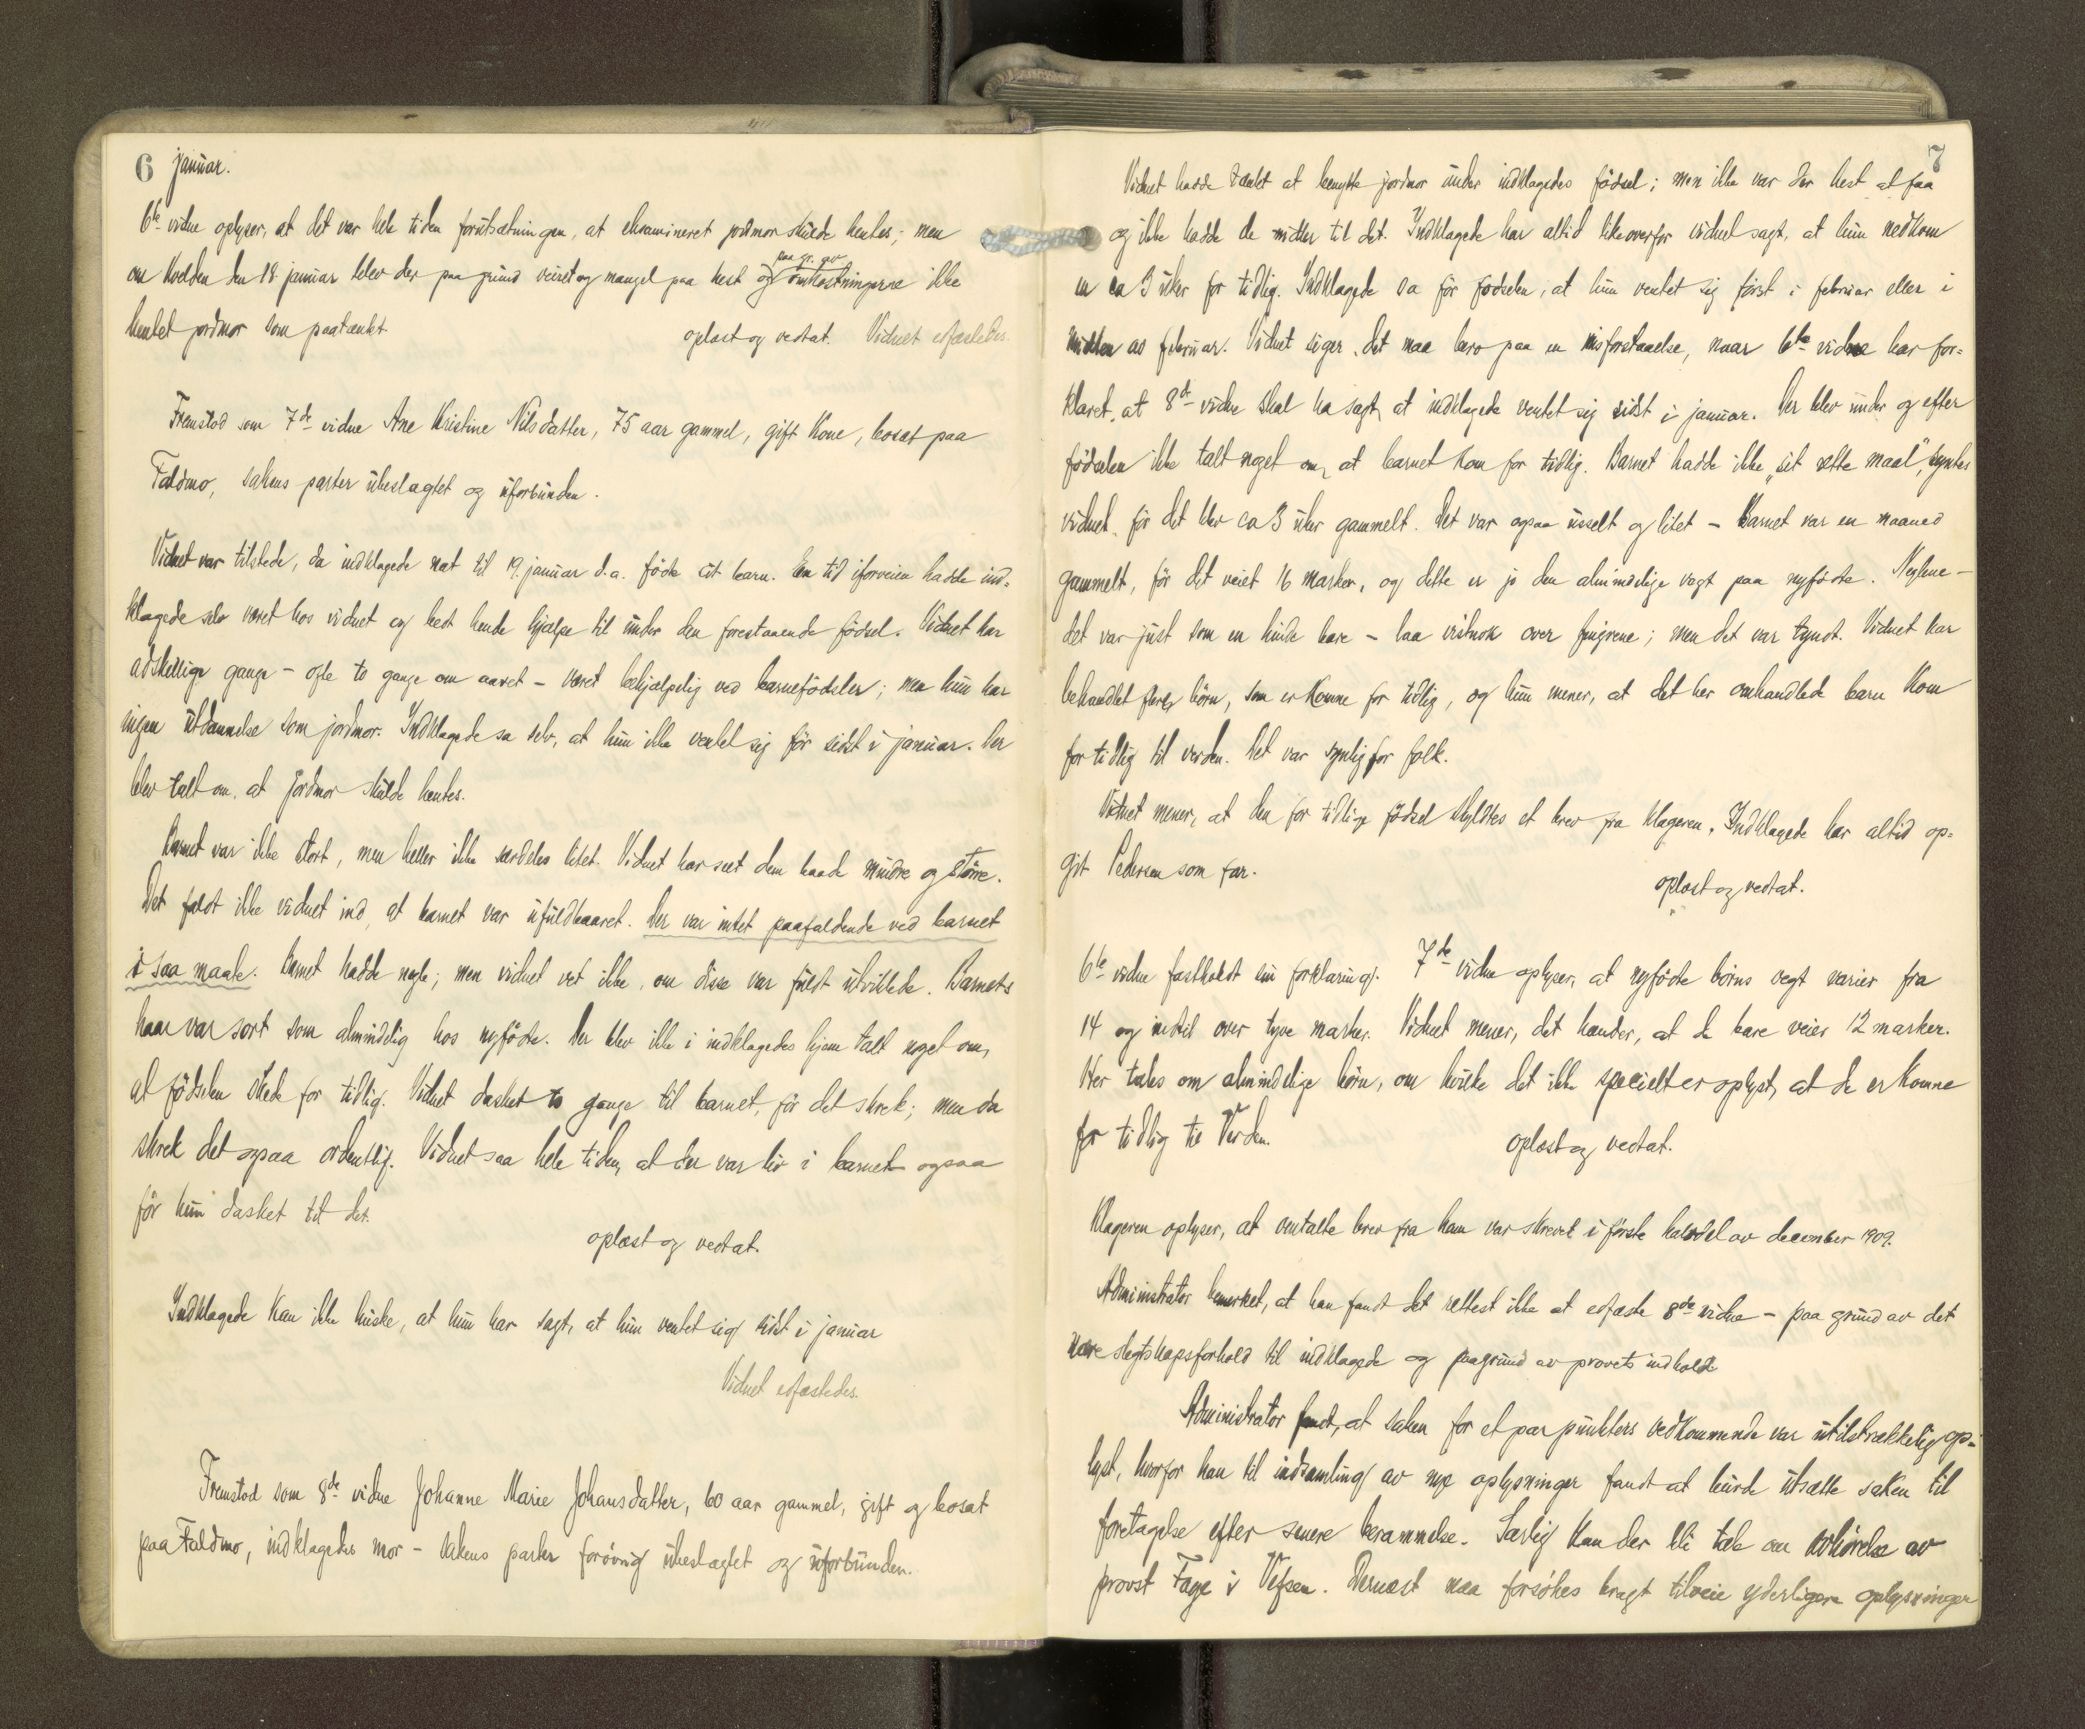 6 januar.
6te vidne oplyser, at det var hele tiden forutsætningen, at eksamineret jordmor skulde hentes; men
om kvelden den 18 januar blev der paa grund veiret og mangel paa hest og paa gr. av omkostningerne ikke
hentet jordmor som paatænkt.
oplæst og vedtat. Vidnet edfæstedes.
Fremstod som 7de vidne Ane Kristine Nilsdatter, 75 aar gammel, gift Kone, bosat paa
Faldmo, sakens parter ubeslægtet og uforbunden.
Vidnet var tilstede, da indklagede nat til 19. januar d.a. fødte sit barn. En tid iforveien hadde ind-
klagede selv været hos vidnet og bedt hende hjælpe til under den forestaaende fødsel. Vidnet har
adskellige gange - ofte to gange om aaret - været behjælpelig ved barnefødsler; men hun har
ingen utdannelse som jordmor. Indklagede sa selv, at hun ikke ventet sig før sidst i januar. Der
blev talt om, at jordmor skulde hentes.
Barnet var ikke stort, men heller ikke særdeles litet. Vidnet har set dem baade mindre og større.
Det faldt ikke vidnet ind, at barnet var ufuldbaaret. Der var intet paafaldende ved barnet
i saa maate. Barnet hadde negle; men vidnet vet ikke, om disse var fuldt utviklede. Barnets
haar var sort som almindelig hos nyfødte. Der blev ikke i indklagedes hjem talt noget om,
at fødselen skede for tidlig. Vidnet dasket to gange til barnet, før det skrek; men da
skrek det ogsaa ordentlig. Vidnet saa hele tiden, at der var liv i barnet ogsaa
før hun dasket til det.
oplæst og vedtat.
Indklagede kan ikke huske, at hun har sagt, at hun ventet sig sidst i januar
Vidnet edfæstedes.
Fremstod som 8de vidne Johanne Marie Johansdatter, 60 aar gammel, gift og bosat
paa Faldmo, indklagedes mor - sakens parter forøvrig ubeslægtet og uforbunden.
7
Vidnet hadde tænkt at benytte jordmor under indklagedes fødsel; men ikke var der hest at faa
og ikke hadde de midler til det. Indklagede har altid likeoverfor vidnet sagt, at hun nedkom
en ca 3 uker for tidlig. Indklagede sa før fødselen, at hun ventet sig først i februar eller i
midten av februar. Vidnet siger, det maa bero paa en misforstaaelse, naar 6te vidne har for-
klaret, at 8de vidne skal ha sagt, at indklagede ventet sig sidst i januar. Der blev under og efter
fødselen ikke talt noget om, at barnet kom for tidlig. Barnet hadde ikke „sit rette maal", syntes
vidnet, før det blev ca 3 uker gammelt. Det var ogsaa usselt og litet - Barnet var en maaned
gammelt, før det veiet 16 marker, og dette er jo den almindelige vegt paa nyfødte. Neglene -
det var just som en hinde bare - laa vistnok over fingrene; men det var tyndt. Vidnet har
behandlet flere børn, som er komne for tidlig, og hun mener, at det her omhandlede barn kom
for tidlig til verden. Det var synlig for folk.
Vidnet mener, at den for tidlige fødsel skyldtes et brev fra klageren. Indklagede har altid op-
git Pedersen som far.
oplæst og vedtat.
6te vidne fastholdt sin forklaring. 7de vidne oplyser, at nyfødte børns vegt varier fra
14 og indtil over tyve marker. Vidnet mener, det hænder, at de bare veier 12 marker.
Her tales om almindelige børn, om hvilke det ikke specielt er oplyst, at de er komne
for tidlig til Verden.
oplæst og vedtat.
Klageren oplyser, at omtalte brev fra ham var skrevet i første halvdel av december 1909.
Administrator bemerket, at han fandt det rettest ikke at edfæste 8de vidne - paa grund av det
nære slegtskapsforhold til indklagede og paa grund av provets indhold.
Administrator fandt, at saken for et par punkters vedkommende var utilstrækkelig op-
lyst, hvorfor han til indsamling av nye oplysninger fandt at burde utsætte saken til
foretagelse efter senere berammelse. Særlig kan der bli tale om avhørelse av
provst Fage i Vefsen. Dernæst maa forsøkes bragt tilveie yderligere oplysninger